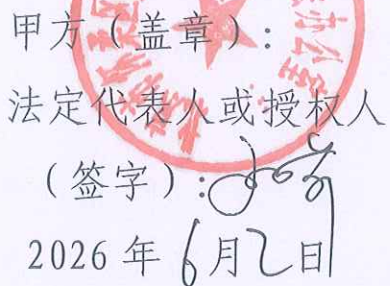 甲方（盖章）：
法定代表人或授权人
（签字）：
2026年6月2日